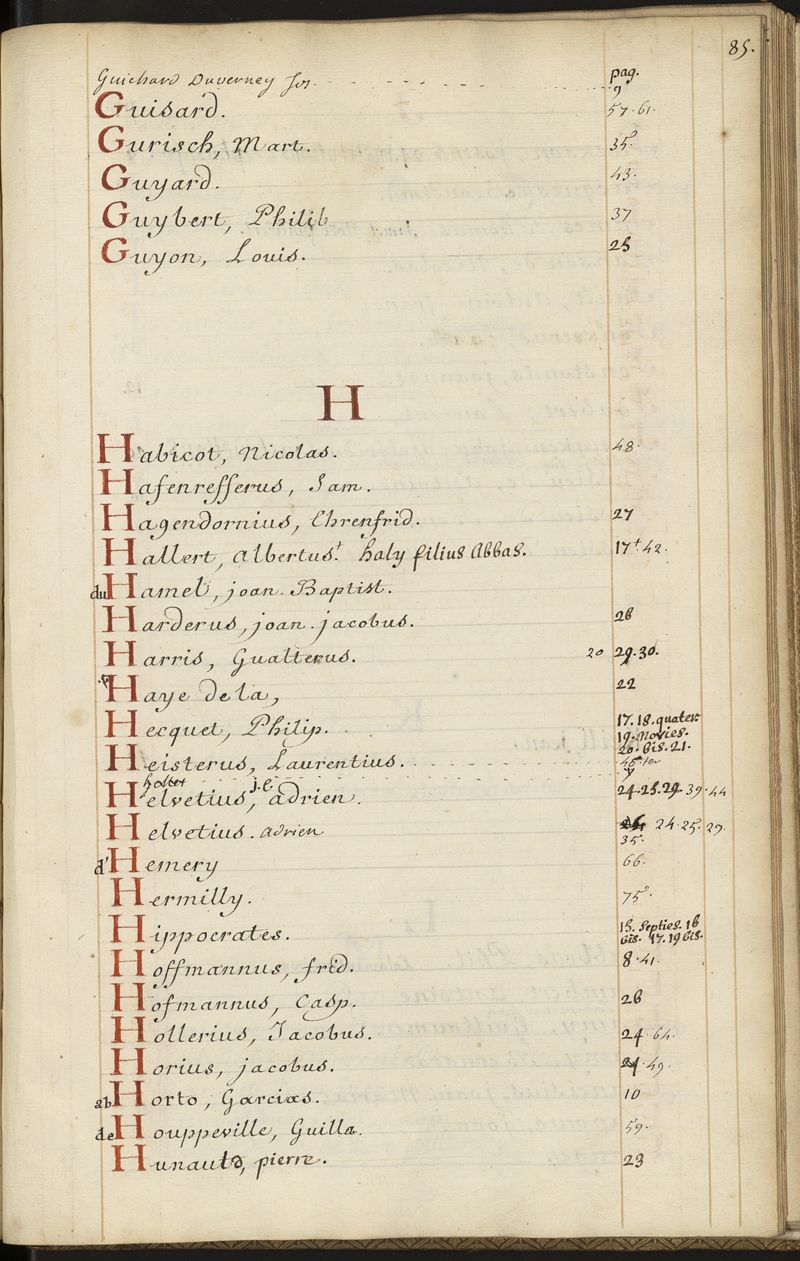 85.
pag.
Guichard Duverney Jos. 9
Guisard. 57. 61.
Gurisch, Mart. 35.
Guyard. 43.
Guybert, Philib 37
Guyon, Louis. 25
H
Habicot, Nicolas. 48.
Hafenrefferus, Sam.
Hagendornius, Ehrenfrid. 27
Hallert, Albertus.† haly filius Abbas. 17† 42.
du Hamel, joan. Baptist.
Harderus, joan. jacobus. 26
Harris, Gualterus. 20 29. 30.
Haye dela, 22
Hecquet, Philip. 17. 18. quater.
19. Novies.
20. bis. 21.
Heisterus, Laurentius. 45 ter
holtet
Helvetius, j. C. adrien. 24. 25. 29. 39. 44
Helvetius. adrien 24. 25. 29.
35.
d' Hemery 66.
Hermilly. 75.
Hippocrates. 15. Septies. 16
bis. 17. 19 bis.
Hoffmannus, frid. 8. 41.
Hofmannus, Casp. 26
Hollerius, Jacobus. 24. 64.
Horius, jacobus. 24. 49.
ab Horto, Garcias. 10
de Houppeville, Guilla. 59.
Hunauld, pierre. 23